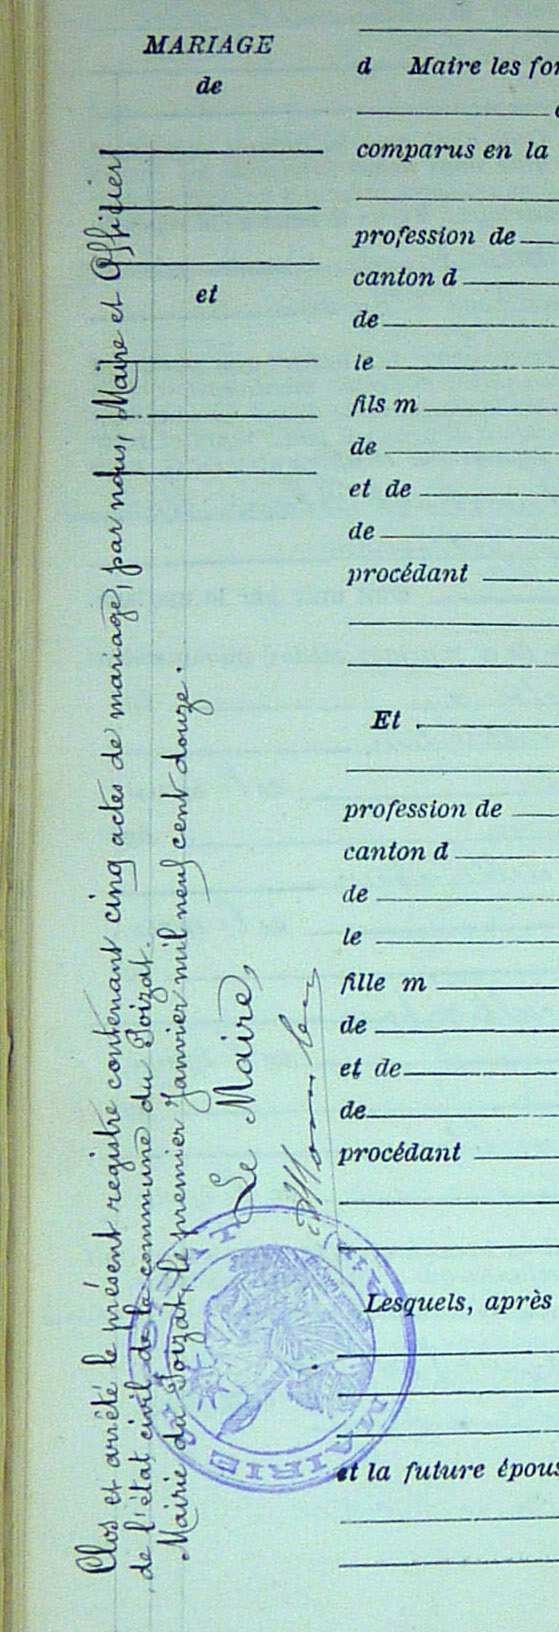 MARIAGE
de
et
d Maire les
comparus en la
profession de
canton d
de
le
fils m
de
et de
de
procédant
Et
profession de
canton d
de
le
fille m
de
et de
de
procédant
Lesquels, après
et la future
Clos et arrêté le présent registre contenant cinq actes de mariage, par nous, Maire et Officier
de l'état civil de la commune du Poizat.
Mairie du Poizat, le premier Janvier mil neuf cent douze.
Le Maire,
MAIRIE